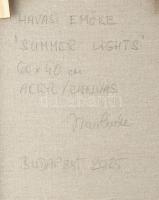 HAVASI EMŐKE
'SUMMER LIGHTS'
60 x 40 cm
AKRYL/CANVAS
BUDAPEST 2025